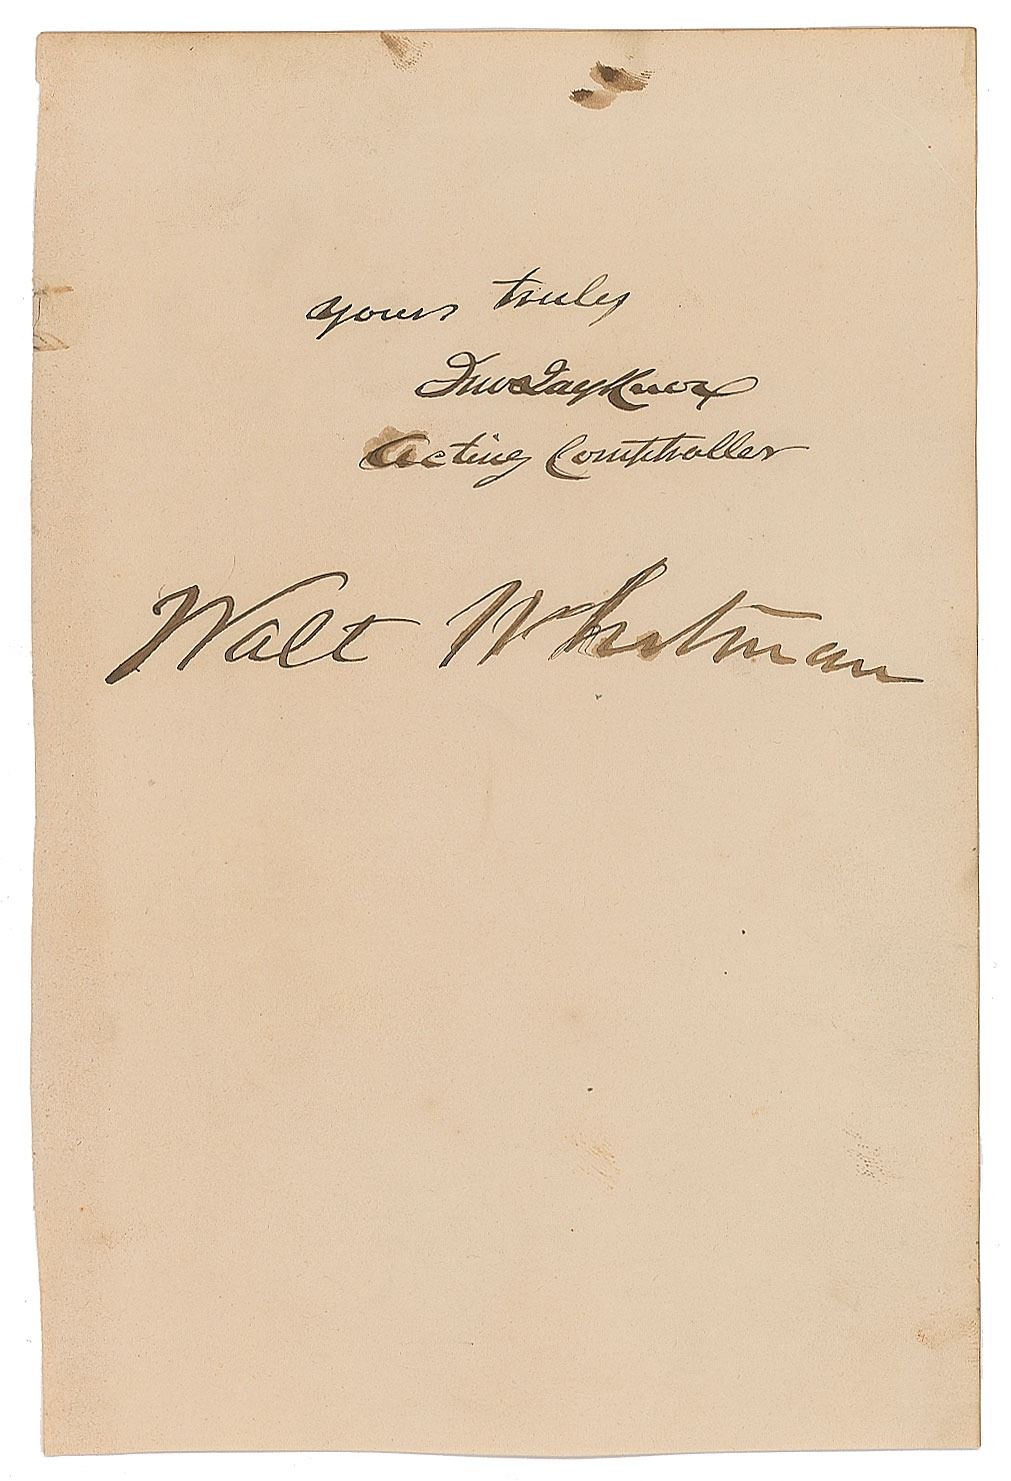 yours truly
Jno Jay Knox
Acting Comptroller
Walt Whitman